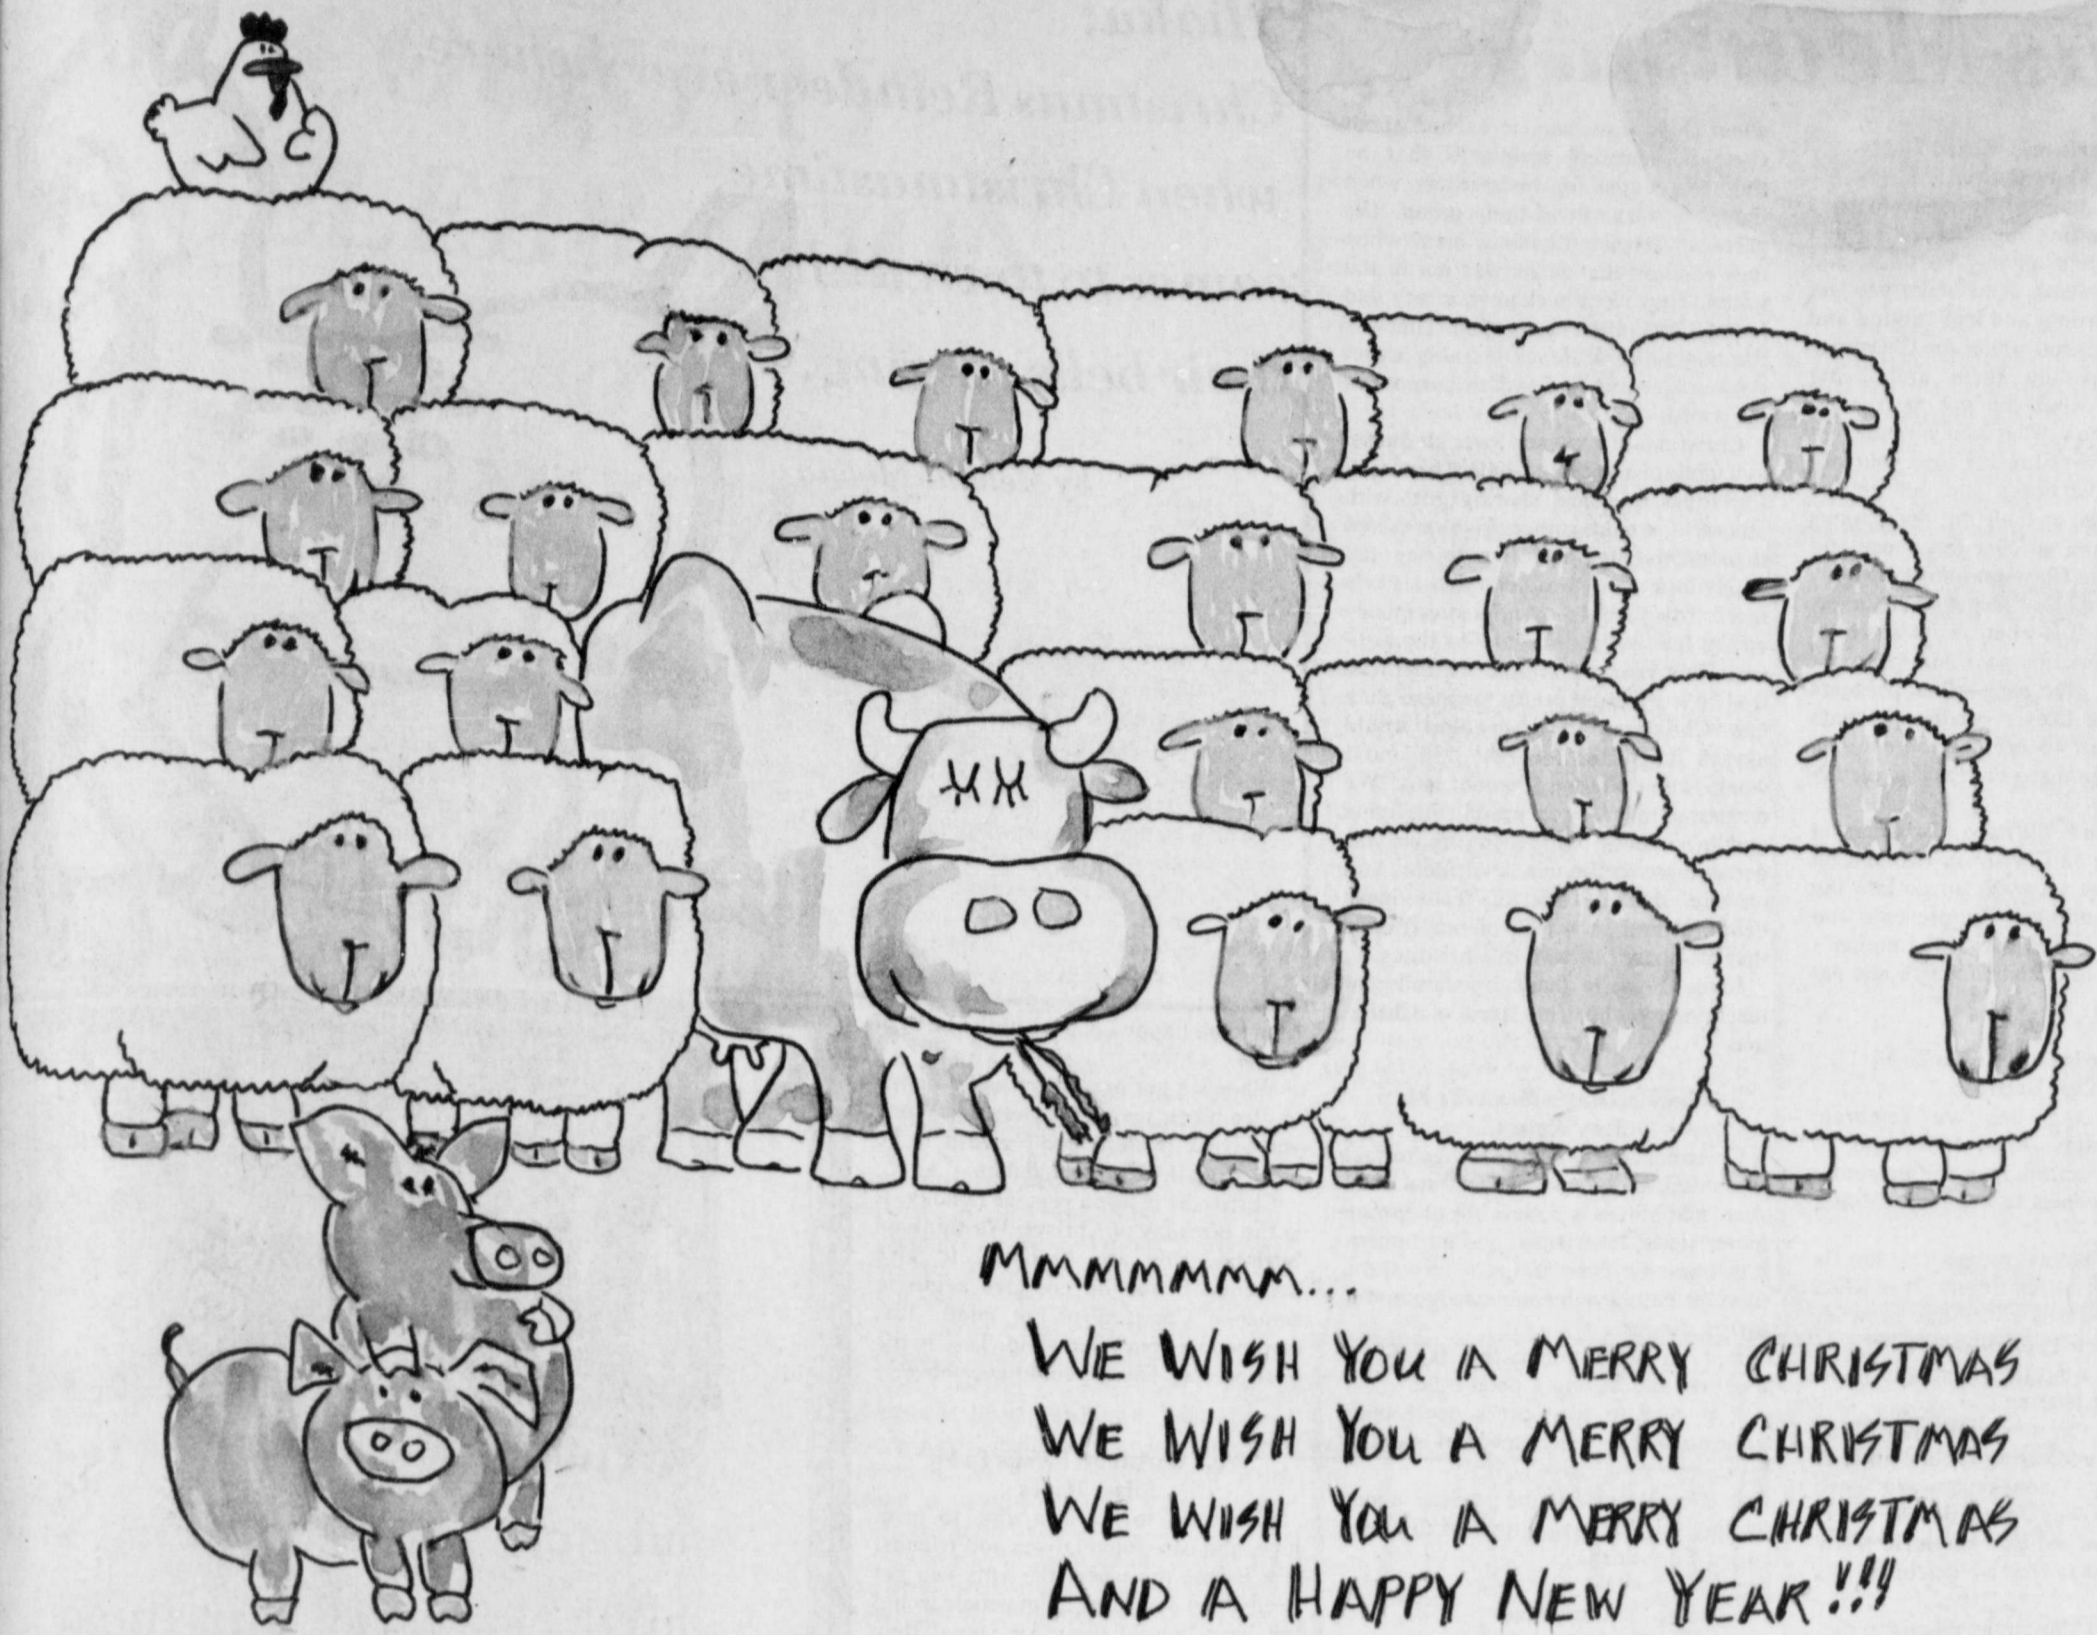 MMMMMMMM...
WE WISH YOU A MERRY CHRISTMAS
WE WISH YOU A MERRY CHRISTMAS
WE WISH YOU A MERRY CHRISTMAS
AND A HAPPY NEW YEAR!!!